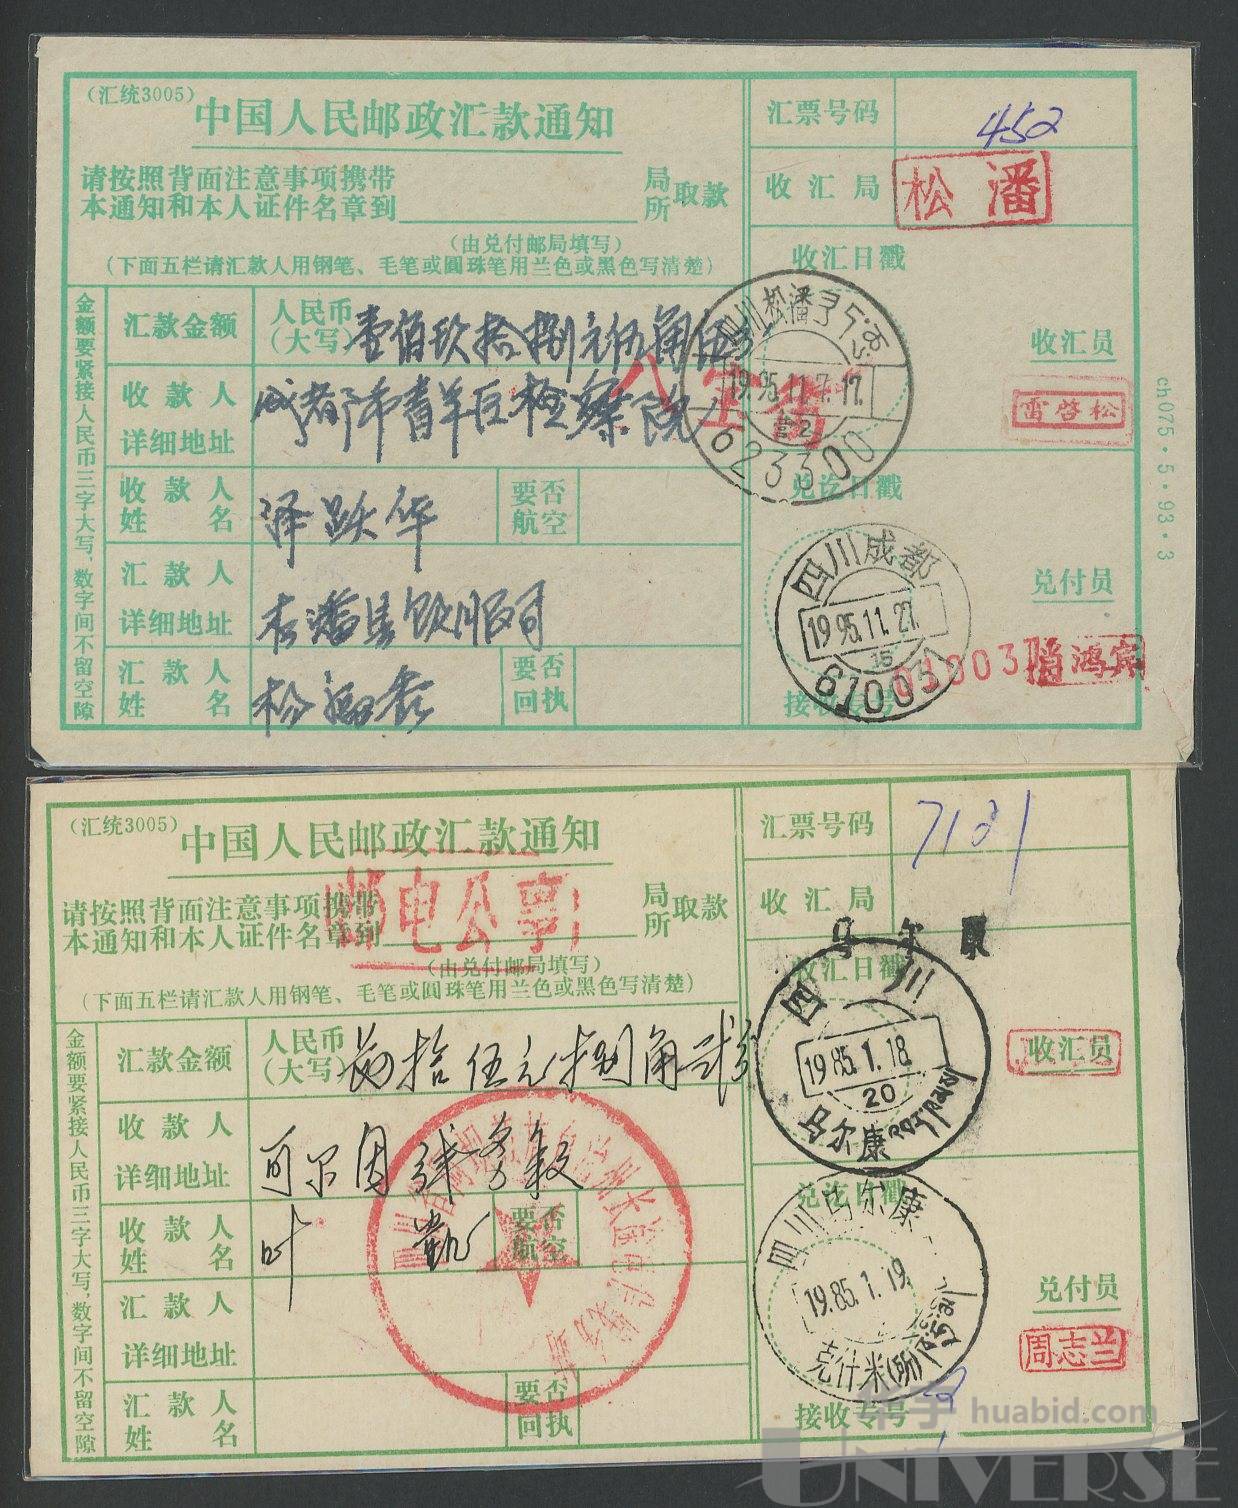 (汇统3005)
中国人民邮政汇款通知
请按照背面注意事项携带
本通知和本人证件名章到 局所取款
(由兑付邮局填写)
(下面五栏请汇款人用钢笔、毛笔或圆珠笔用兰色或黑色写清楚)
金额要紧接人民币三字大写,数字间不留空隙
汇款金额 人民币(大写) 壹佰玖拾捌元伍角
收款人详细地址 成都市青羊区检察院
收款人姓名 泽跃华 要否航空
汇款人详细地址 松潘县
汇款人姓名 要否回执
汇票号码 452
收汇局 松潘
收汇日戳
四川松潘
1995.11.7.17.
营2
623300
收汇员
雷启松
兑讫日戳
四川成都
1995.11.27.
15
610031
兑付员
鸿宾
接收专号
ch075·5·93·3
(汇统3005)
中国人民邮政汇款通知
邮电公事
请按照背面注意事项携带
本通知和本人证件名章到 局所取款
(由兑付邮局填写)
(下面五栏请汇款人用钢笔、毛笔或圆珠笔用兰色或黑色写清楚)
金额要紧接人民币三字大写,数字间不留空隙
汇款金额 人民币(大写) 拾伍元捌角
收款人详细地址 可尔因
收款人姓名 叶凯 要否航空
汇款人详细地址
汇款人姓名 要否回执
汇票号码 7131
收汇局
马尔康
收汇日戳
四川
1985.1.18.
20
马尔康
收汇员
兑讫日戳
四川马尔康
19.85.1.19.
克什米(所)
兑付员
周志兰
接收专号
华宇 huabid.com
UNIVERSE